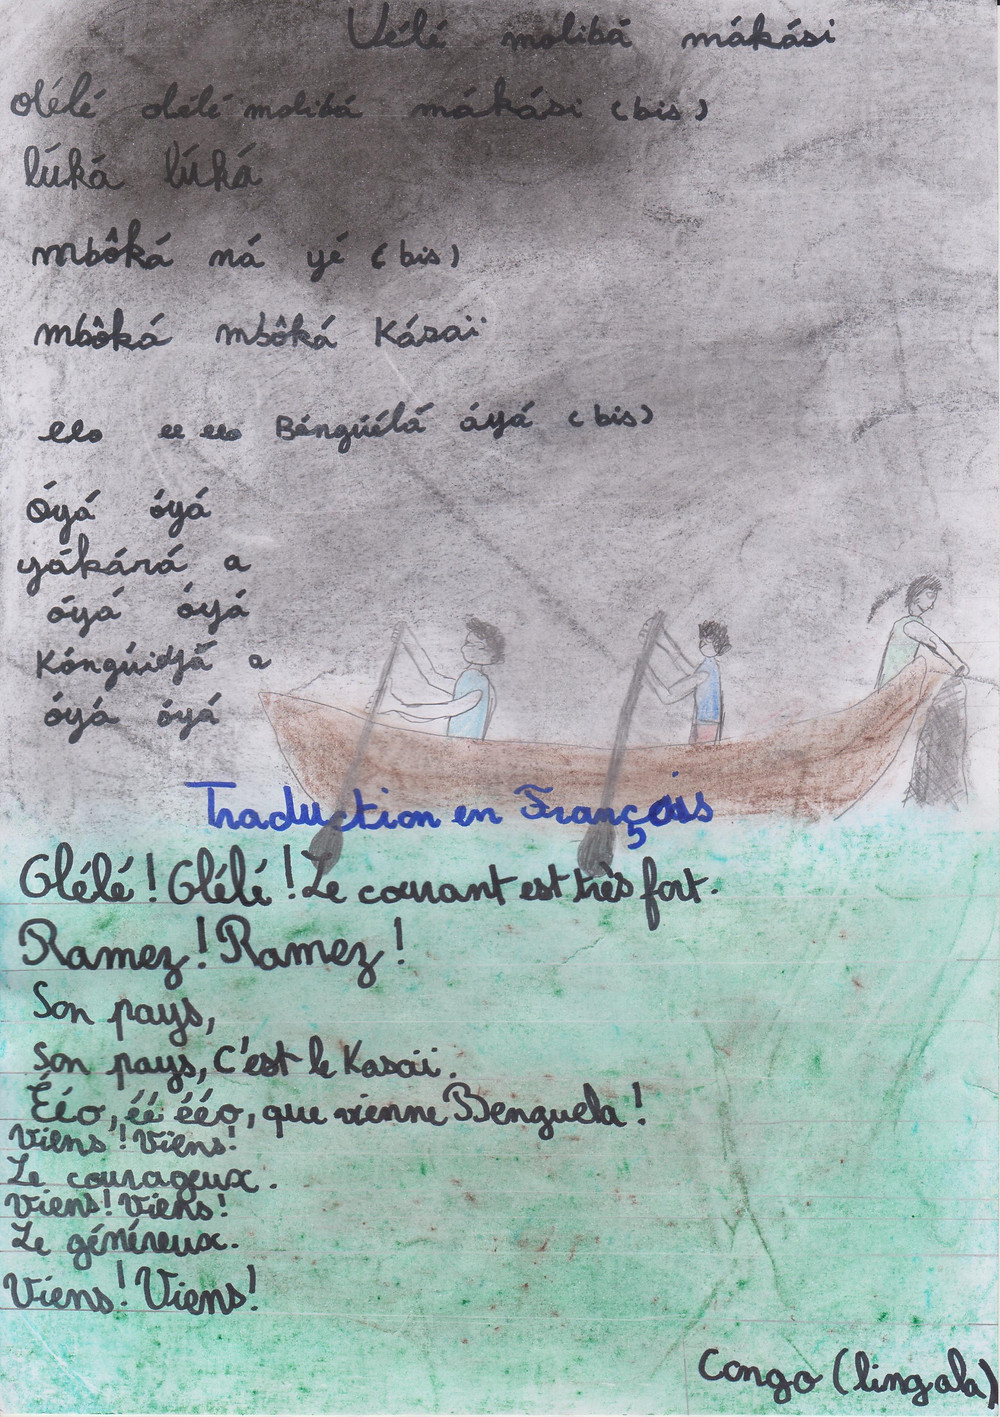 Uélé molibá mákási
olélé olélé molibá mákási (bis)
lúká lúká
mbôká ná yé (bis)
mbôká mbôká Kásaï
eeo ee eeo Bénguélá áyá (bis)
óyá óyá
yákárá a
óyá óyá
Kónguidjá a
óyá óyá
Traduction en Français
Olélé ! Olélé ! Le courant est très fort.
Ramez ! Ramez !
Son pays,
Son pays, C'est le Kasaï.
Ééo, éé ééo, que vienne Benguela !
Viens ! Viens !
Le courageux.
Viens ! Viens !
Le généreux.
Viens ! Viens !
Congo (lingala)